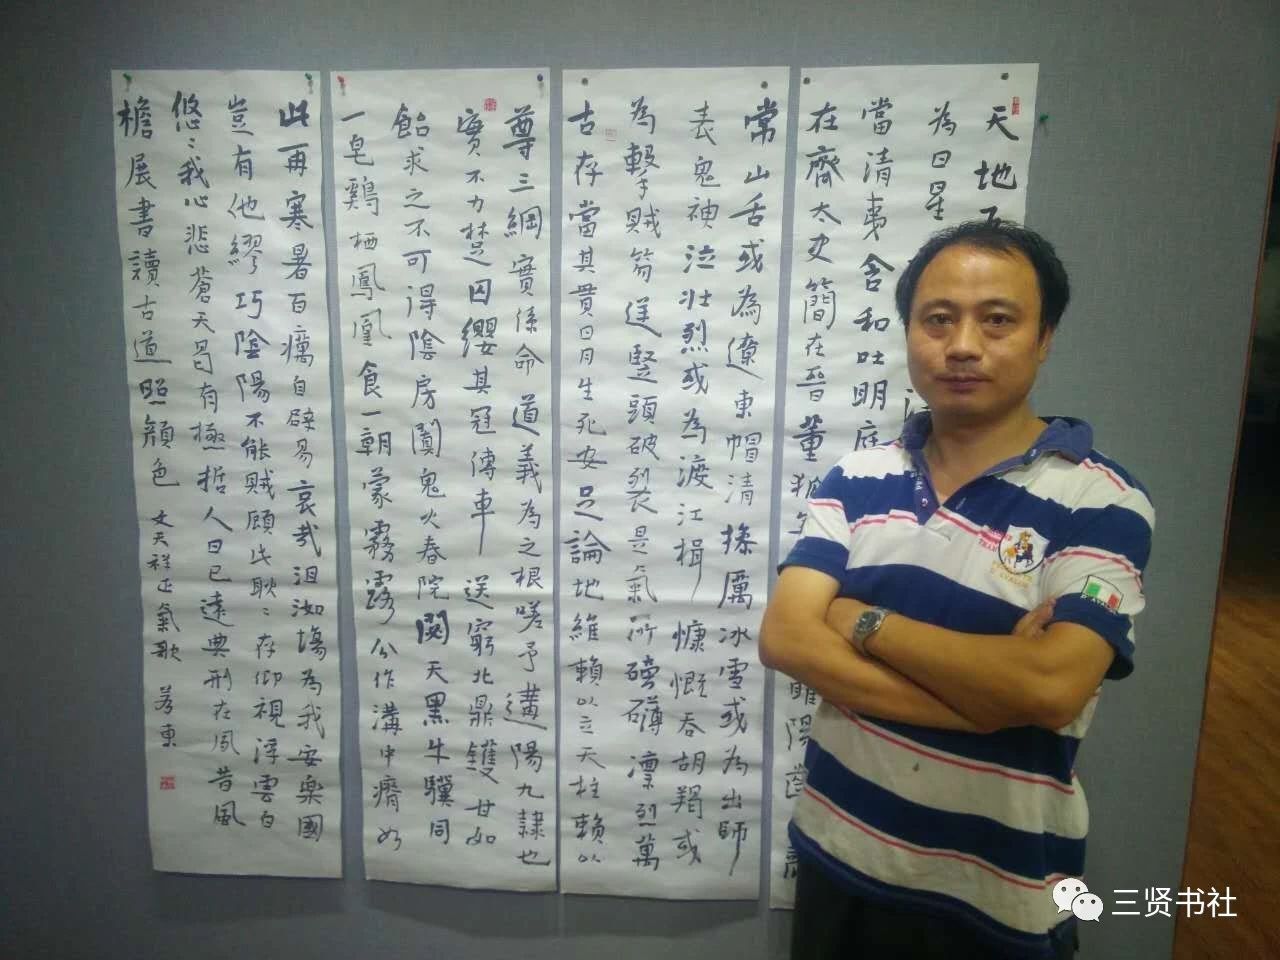 天地
為日星
當清夷含和吐明庭
在齊太史簡在晉董 睢陽齒
常山舌或為遼東帽清操厲冰雪或為出師
表鬼神泣壯烈或為渡江楫慷慨吞胡羯或
為擊賊笏逆豎頭破裂是氣所磅礴凜烈萬
古存當其貫日月生死安足論地維賴以立天柱賴以
尊三綱實係命道義為之根嗟予遘陽九隸也
實不力楚囚纓其冠傳車送窮北鼎鑊甘如
飴求之不可得陰房闃鬼火春院閟天黑牛驥同
一皂鷄栖鳳凰食一朝蒙霧露分作溝中瘠如
此再寒暑百癘自辟易哀哉沮洳場為我安樂國
豈有他繆巧陰陽不能賊顧此耿〻存仰視浮雲白
悠〻我心悲蒼天曷有極哲人日已遠典刑在夙昔風
檐展書讀古道照顏色 文天祥正氣歌 若東
三贤书社